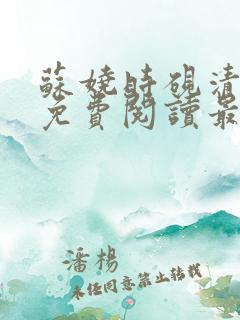 蘇嬈時硯清
免費閱讀最
潘楊
未經同意禁止轉載